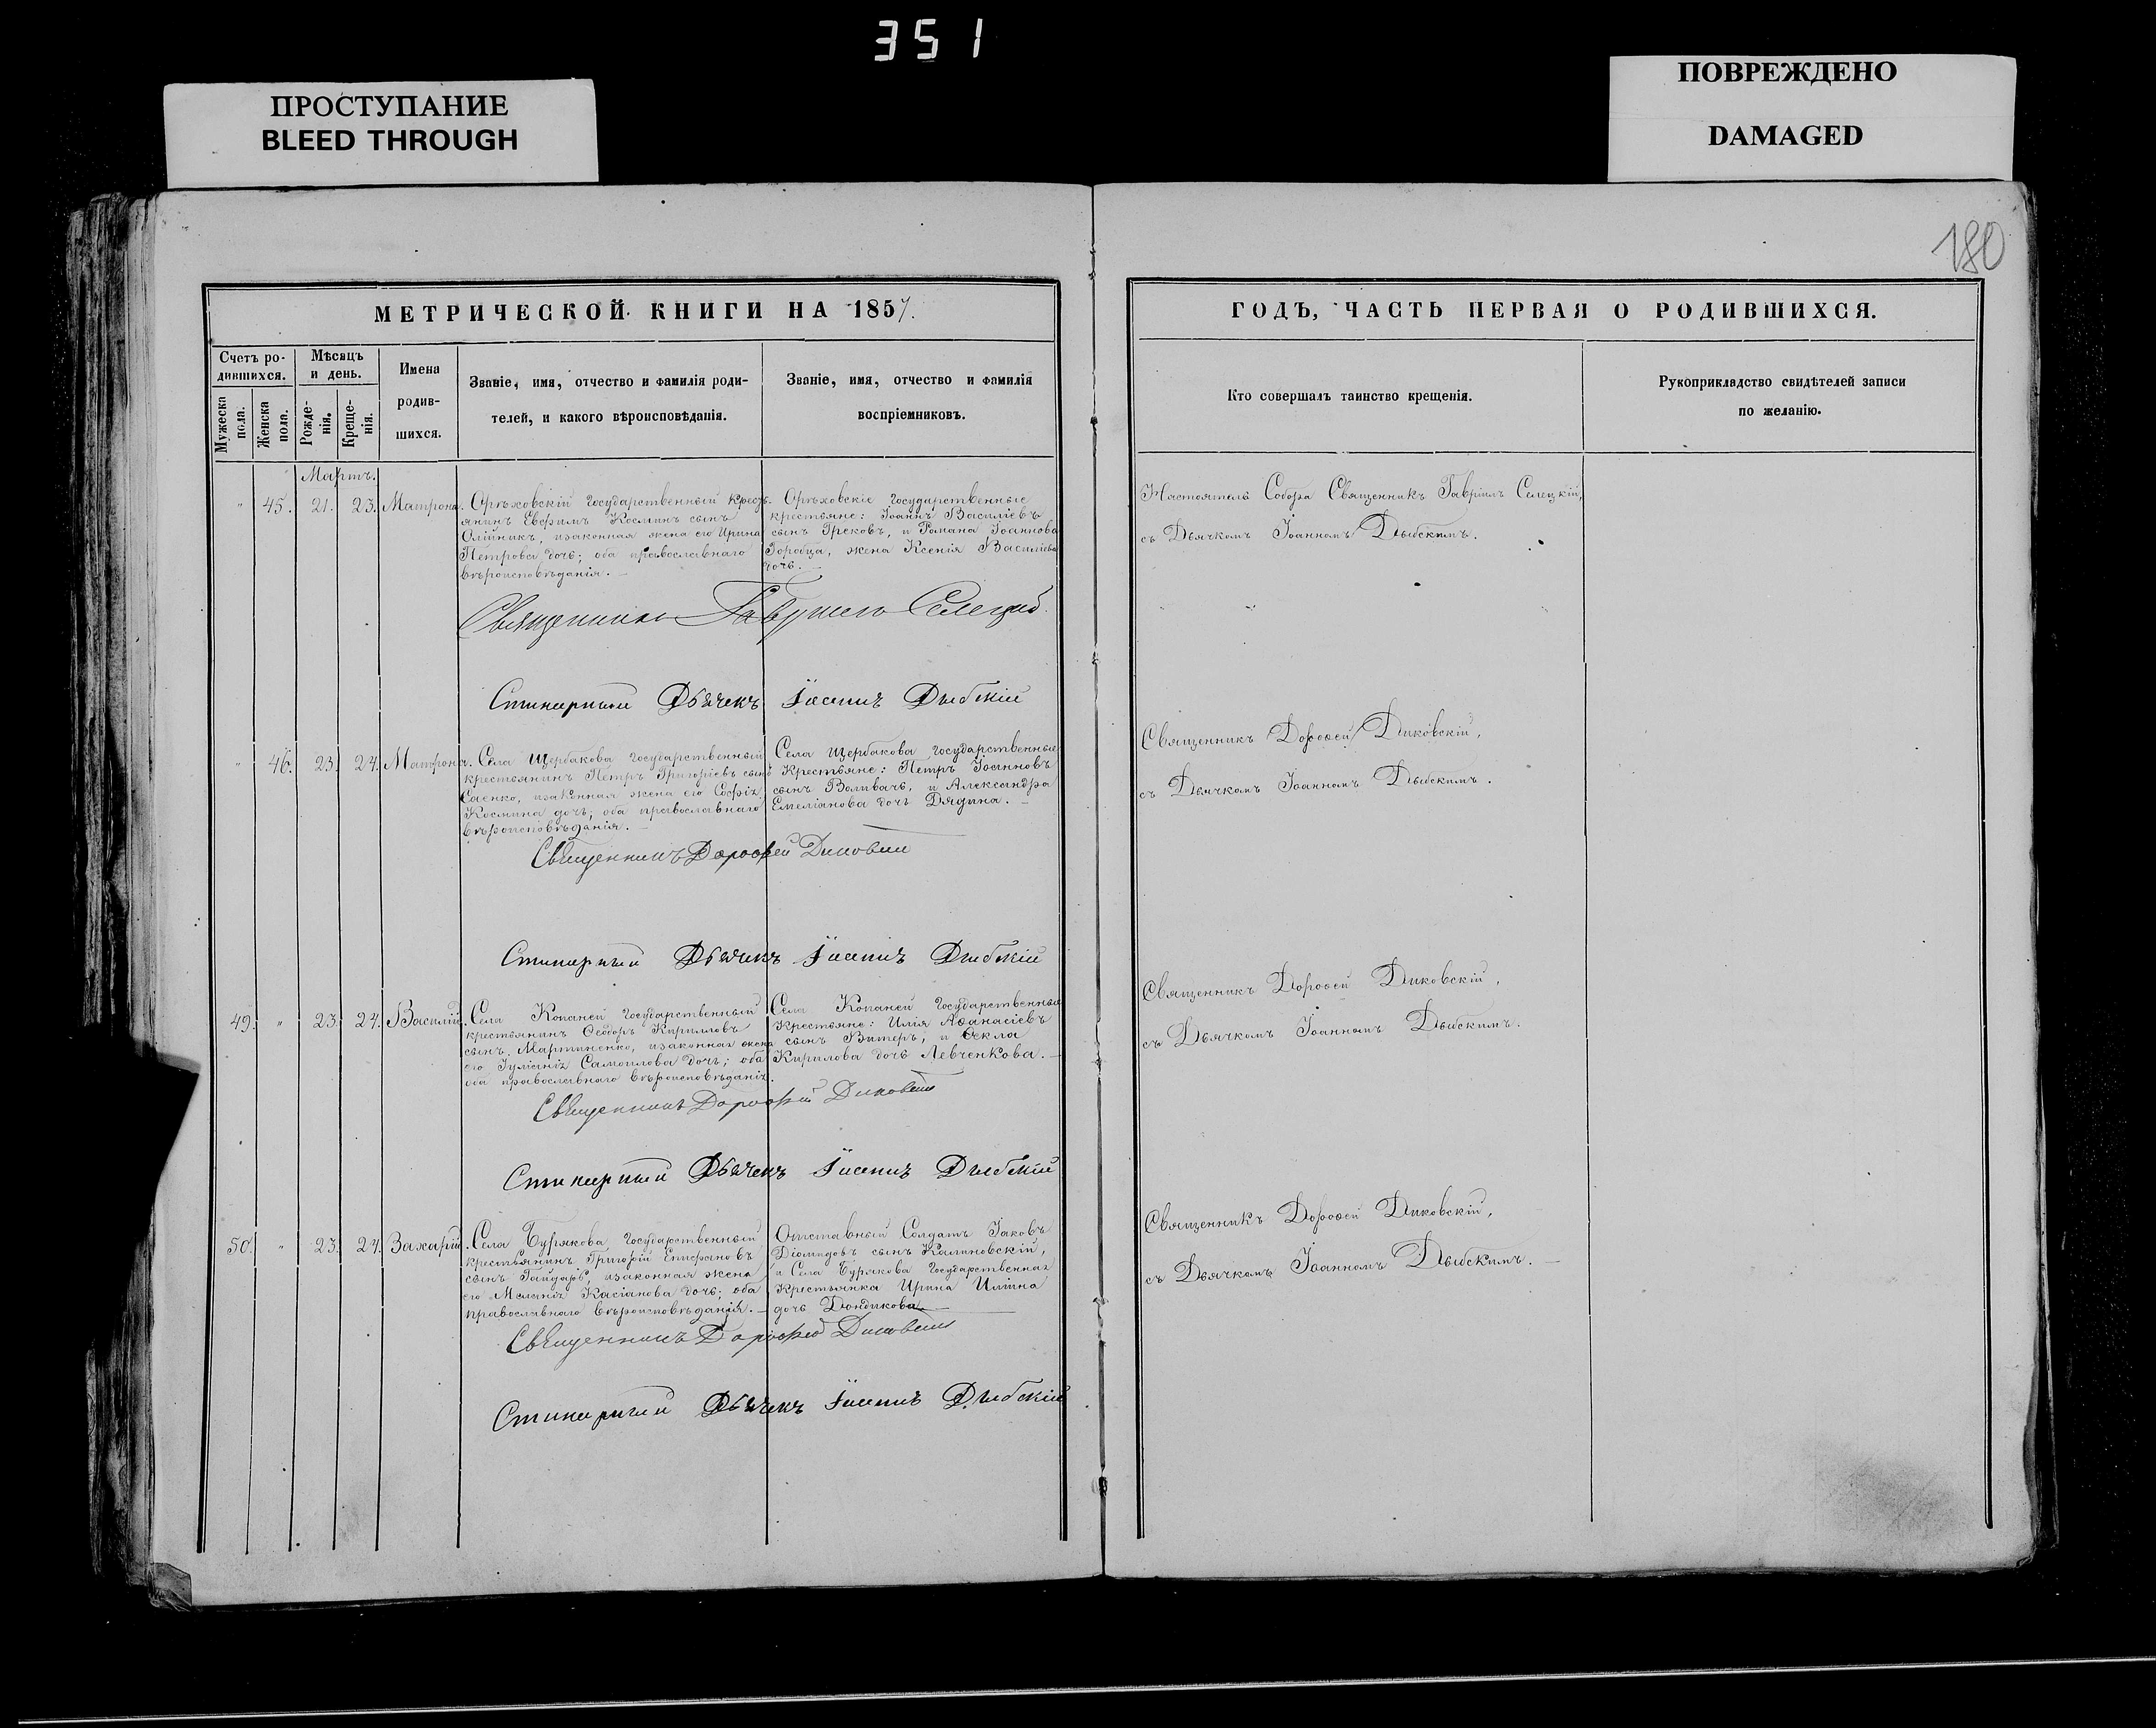 351
ПРОСТУПАНИЕ
BLEED THROUGH
ПОВРЕЖДЕНО
DAMAGED
180
МЕТРИЧЕСКОЙ КНИГИ НА 1857.
Счетъ ро-
дившихся.
Мужеска
пола.
Женска
пола.
Мѣсяцъ
и день.
Рожде-
нія.
Креще-
нія.
Имена
родив-
шихся.
Званіе, имя, отчество и фамилія роди-
телей, и какого вѣроисповѣданія.
Званіе, имя, отчество и фамилія
воспріемниковъ.
Мартъ.
" 45. 21. 23. Матрона.
Орѣховскій Государственный крест-
янинъ Евфимъ Косминъ сынъ
Олійникъ, изаконная жена его Ирина
Петрова дочь; оба православнаго
вѣроисповѣданія. —
Орѣховскіе Государственные
крестьяне: Іоаннъ Василіевъ
сынъ Грековъ, и Романа Іоаннова
Горобца, жена Ксенія Василіева
дочь. —
Священникъ Гавріилъ Селецкій
Стихарный Дьячекъ Іоаннъ Дыбскій
" 46. 23. 24. Матрона.
Села Щербакова государственный
крестьянинъ Петръ Григоріевъ сынъ
Саенко, изаконная жена его Софія
Космина дочь; оба православнаго
вѣроисповѣданія. —
Села Щербакова государственные
крестьяне: Петръ Іоанновъ
сынъ Воливачь, и Александра
Емеліанова дочь Дядина. —
Священникъ Дорофей Диковскій
Стихарный Дьячекъ Іоаннъ Дыбскій
49. " 23. 24. Василій.
Села Копаней Государственный
крестьянинъ Ѳеодоръ Кирилловъ
сынъ Мартиненко, изаконная жена
его Іуліанія Самоилова дочь; оба
оба православнаго вѣроисповѣданія.
Села Копаней Государственные
Крестьяне: Илія Аѳанасіевъ
сынъ Витеръ, и Ѳекла
Кирилова дочь Левченкова. —
Священникъ Дорофей Диковскій
Стихарный Дьячекъ Іоаннъ Дыбскій
50. " 23. 24. Захарій.
Села Бурякова Государственный
крестьянинъ Григорій Епифановъ
сынъ Гайдарь, изаконная жена
его Меланія Касіанова дочь; оба
православнаго вѣроисповѣданія. —
Отставный Солдатъ Іаковъ
Діомидовъ сынъ Калиновскій,
и Села Бурякова Государственная
Крестьянка Ирина Иліина
дочь Дондикова
Священникъ Дорофей Диковскій
Стихарный Дьячекъ Іоаннъ Дыбскій
ГОДЪ, ЧАСТЬ ПЕРВАЯ О РОДИВШИХСЯ.
Кто совершалъ таинство крещенія.
Рукоприкладство свидѣтелей записи
по желанію.
Настоятель Собора Священникъ Гавріилъ Селецкій,
съ Дьячкомъ Іоанномъ Дыбскимъ.
Священникъ Дороѳей Диковскій,
съ Дьячкомъ Іоанномъ Дыбскимъ.
Священникъ Дороѳей Диковскій,
съ Дьячкомъ Іоанномъ Дыбскимъ.
Священникъ Дороѳей Диковскій,
съ Дьячкомъ Іоанномъ Дыбскимъ. —